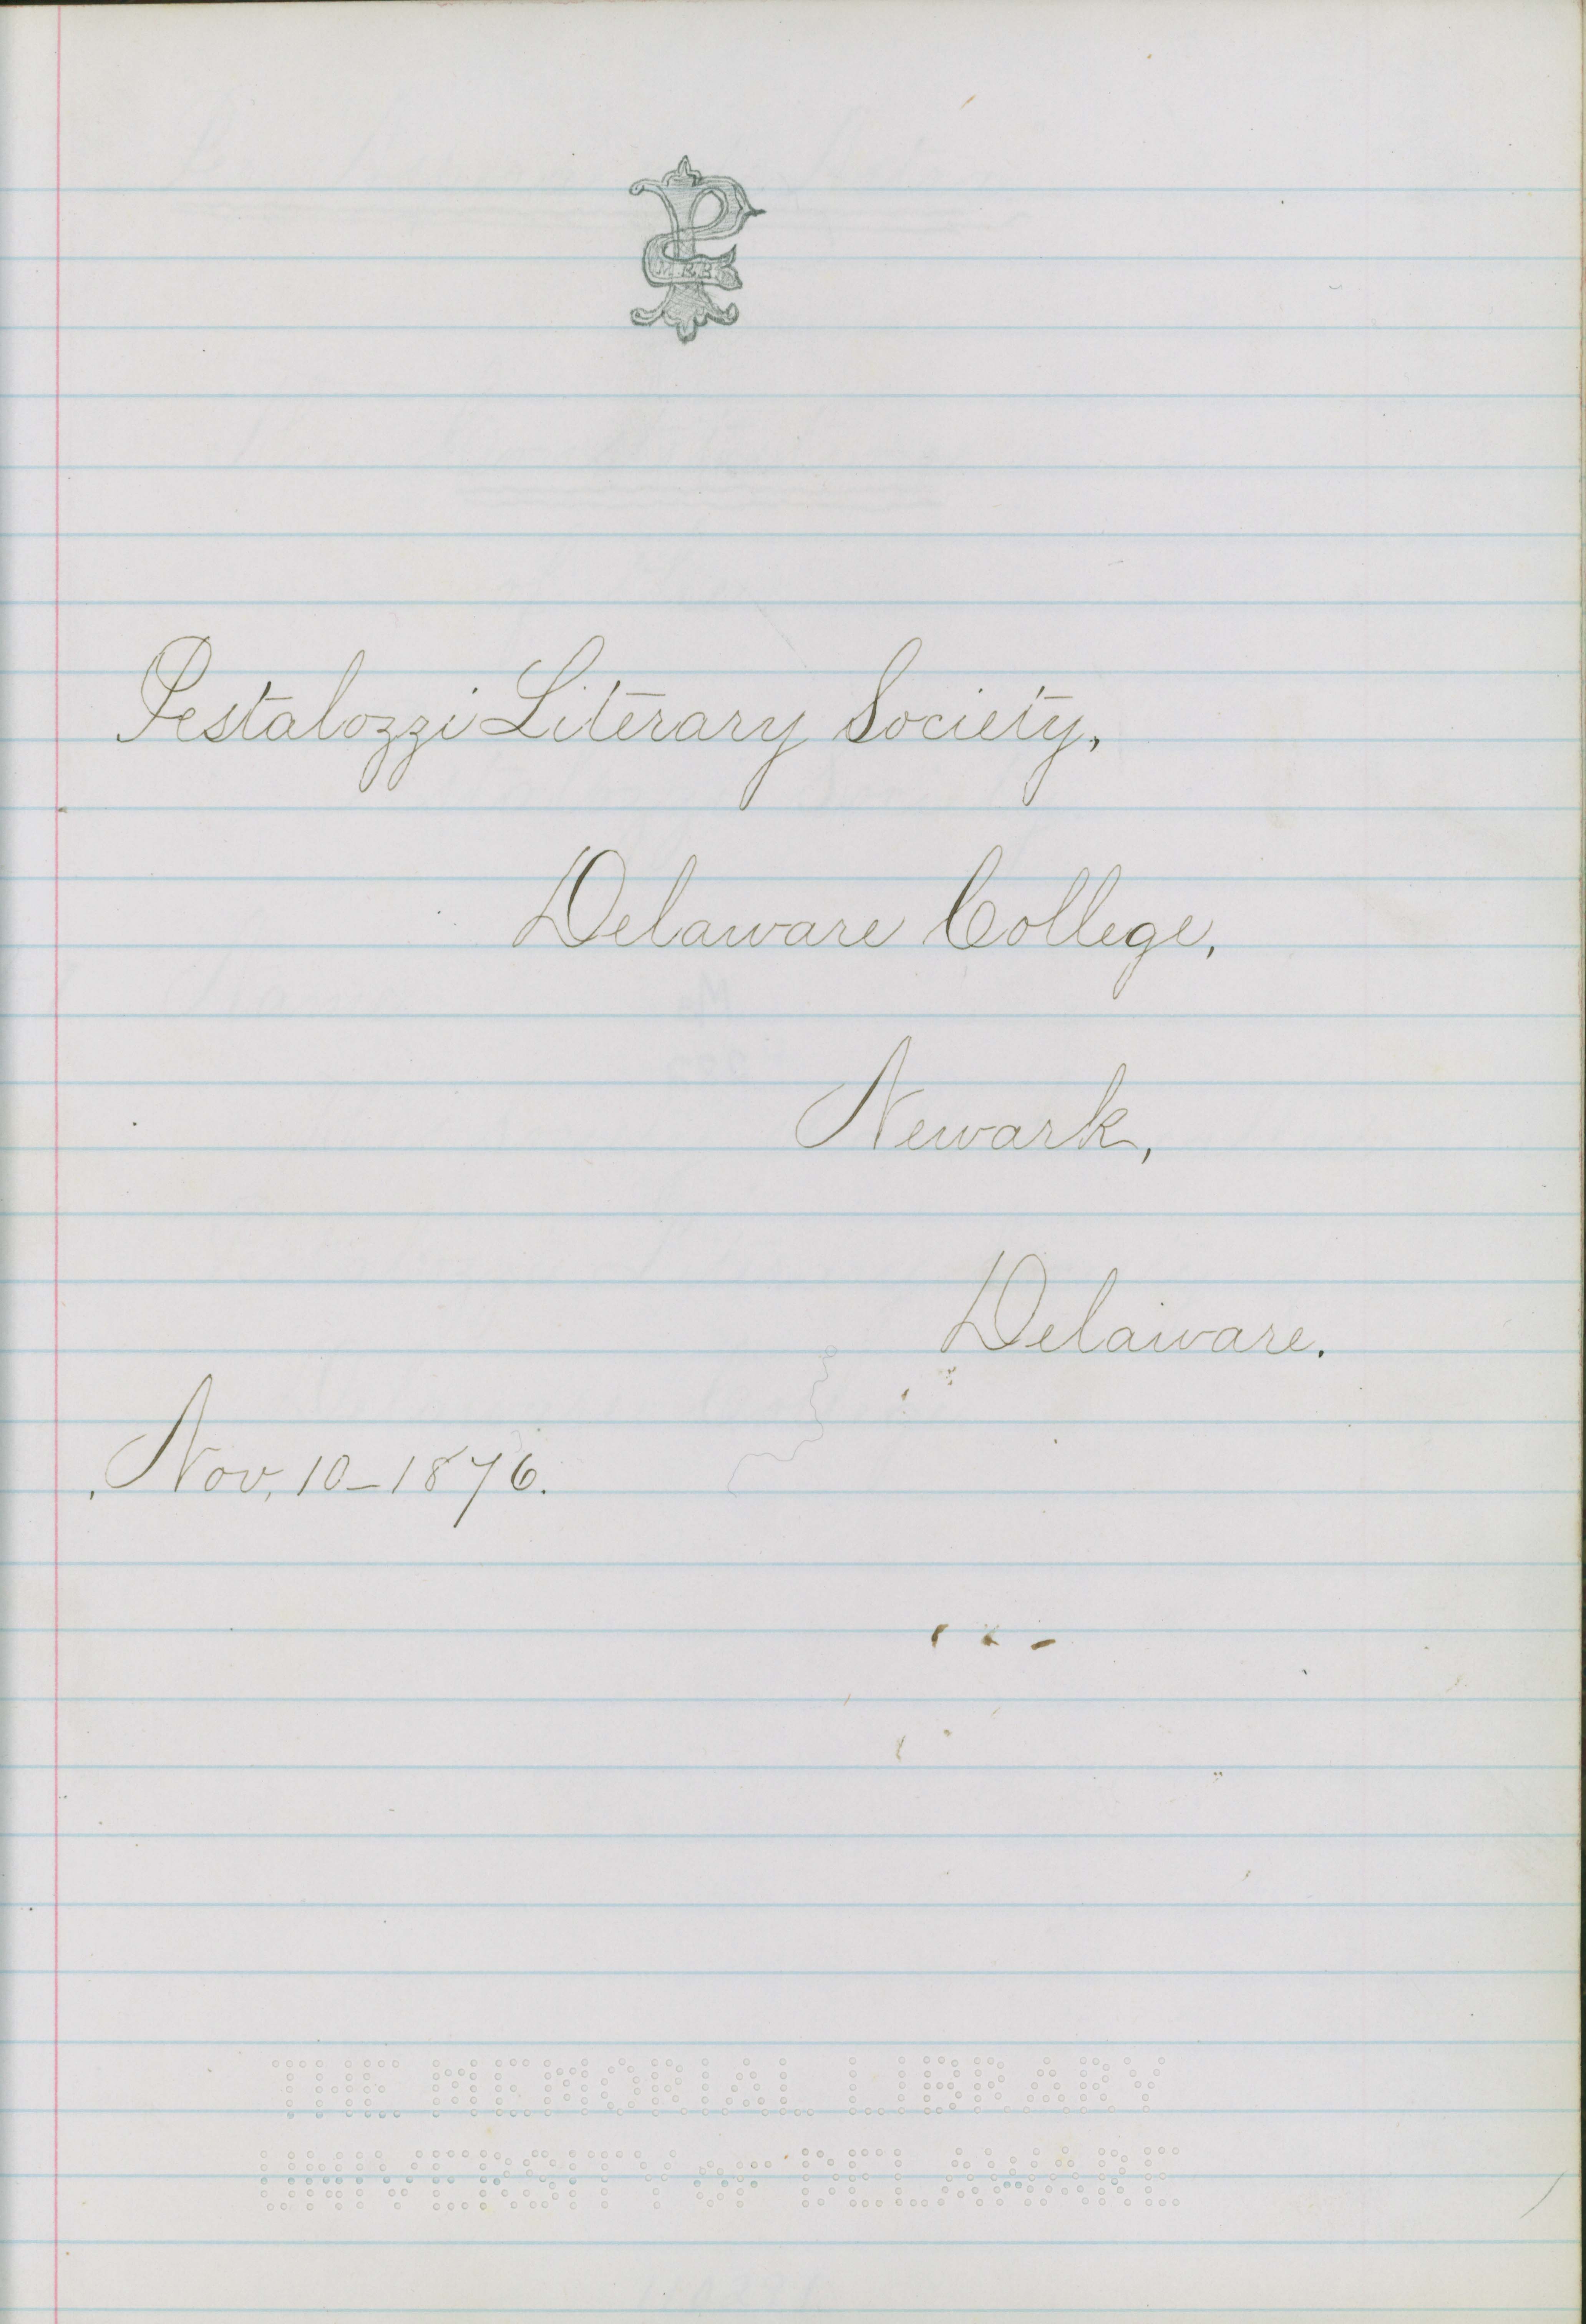 P
Pestalozzi Literary Society,
Delaware College,
Newark,
Delaware.
Nov. 10 - 1876.
THE MEMORIAL LIBRARY
UNIVERSITY OF DELAWARE